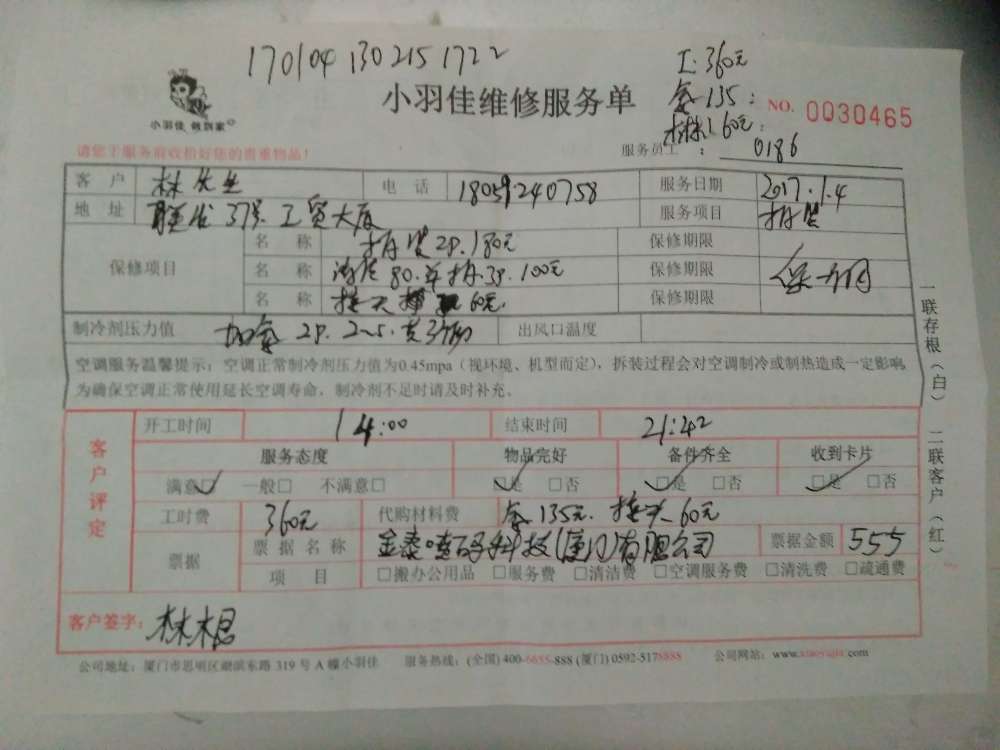 170104130215 1722
工:360元
氨135:
材料60元:
小羽佳 做到家
小羽佳维修服务单
NO. 0030465
请您于服务前收拾好您的贵重物品!
服务员工: 0186
客户 林先生 电话 18059240758 服务日期 2017.1.4
地址 37号工贸大厦 服务项目 拆装
保修项目
名称 拆装2P.180元 保修期限
名称 80.单拆3P.100元 保修期限
名称 接头 60元 保修期限
保一个月
制冷剂压力值 加氨 2P. 出风口温度
空调服务温馨提示:空调正常制冷剂压力值为0.45mpa(视环境、机型而定),拆装过程会对空调制冷或制热造成一定影响,
为确保空调正常使用延长空调寿命,制冷剂不足时请及时补充。
一联存根(白) 二联客户(红)
客户评定
开工时间 14:00 结束时间 21:42
服务态度 物品完好 备件齐全 收到卡片
满意☑ 一般□ 不满意□ ☑是 □否 ☑是 □否 ☑是 □否
工时费 360元 代购材料费 氨135元. 接头60元
票据 票据名称 科技(厦门)有限公司 票据金额 555
项目 □搬办公用品 □服务费 □清洁费 □空调服务费 □清洗费 □疏通费
客户签字:
公司地址:厦门市思明区湖滨东路 319 号 A 幢小羽佳 服务热线:(全国) 400-6685-888 (厦门) 0592-5178888 公司网站:www.xiaoyujia.com